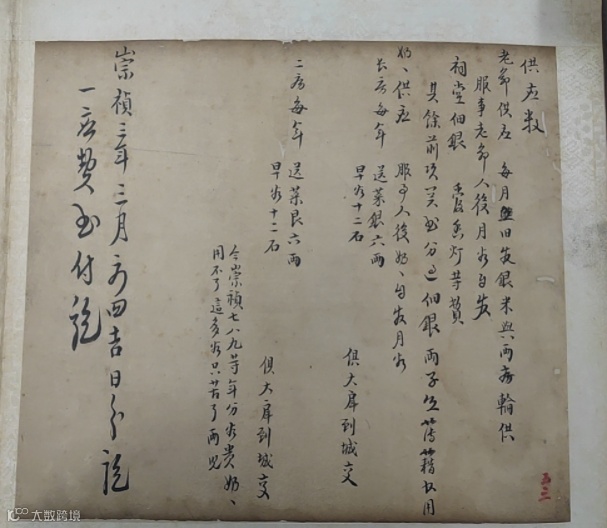 供应数
老爷供应 每月照旧发银米与两房轮供
服事老爷人役月米自发
祠堂佃银 香灯等费
其余前项 分过佃银两子 簿籍收用
奶、供应 服事人役奶、自发月米
长房每年 送菜银六两
早谷十二石
俱大扉到城交
二房每年 送菜艮六两
早谷十二石
俱大扉到城交
今崇祯七八九等年分谷贵奶、
用不了这多谷只苦了两儿
崇祯三年三月初四吉日分讫
一应费 付讫
五三
大数跨境